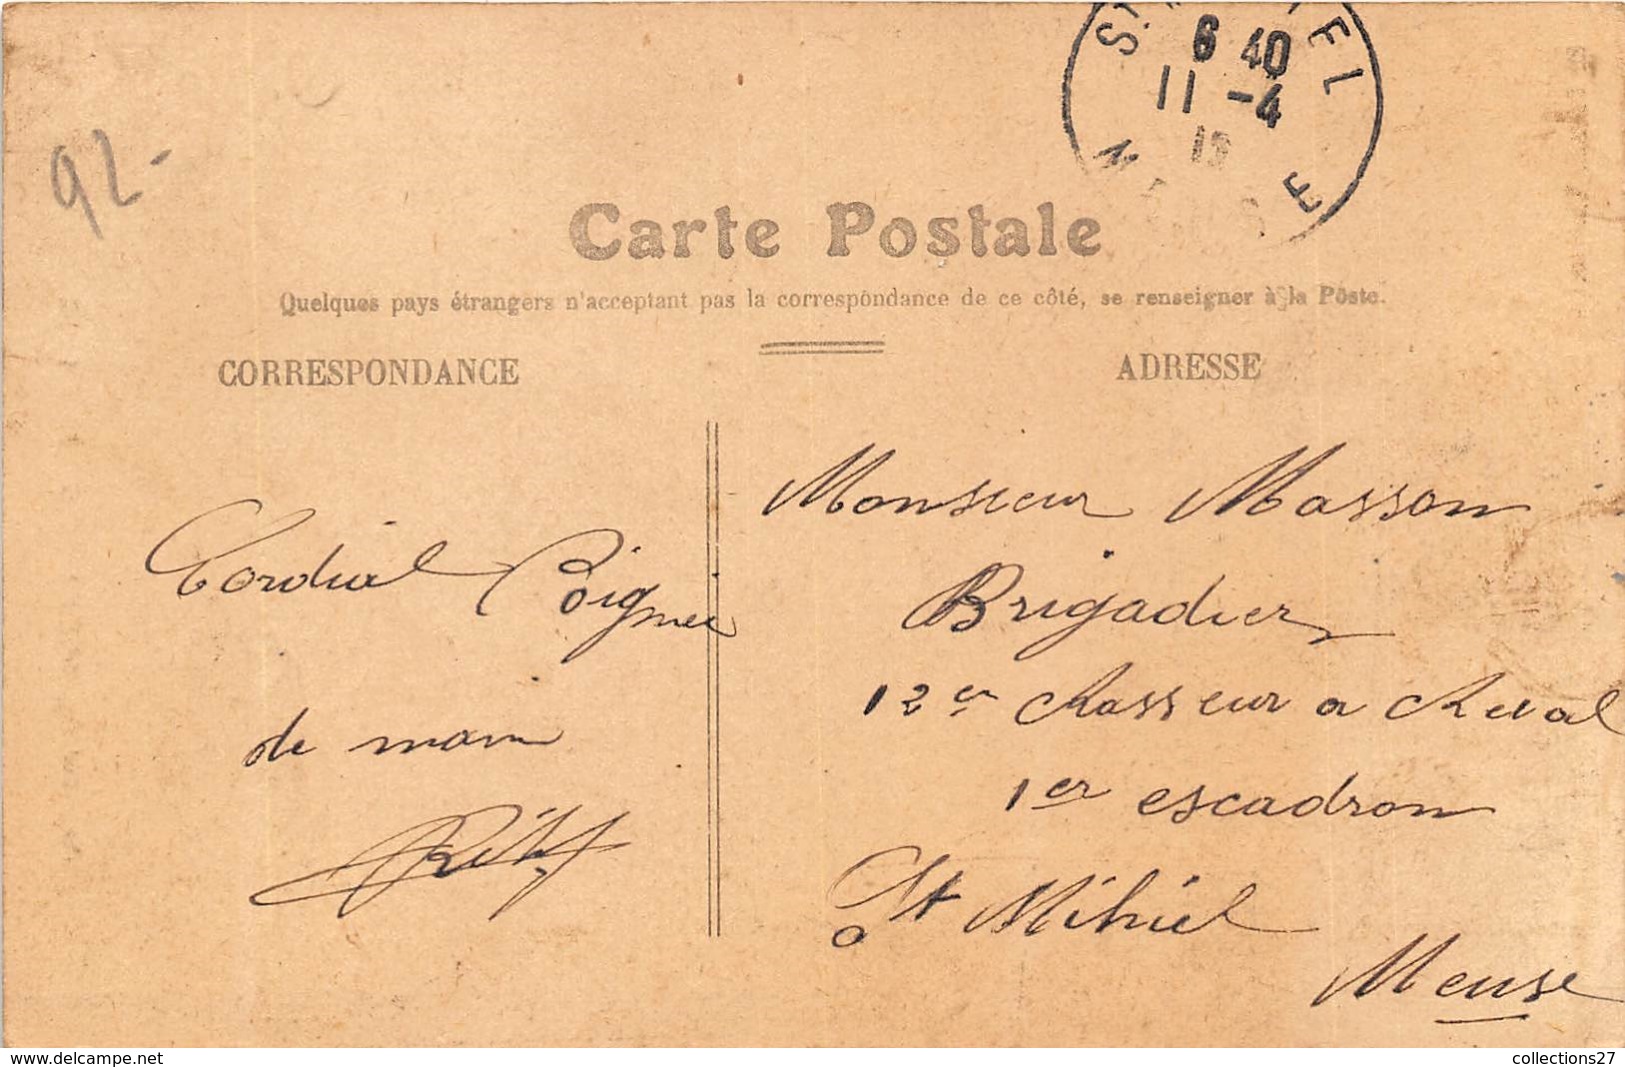 92-
6 40
11 -4
Carte Postale
Quelques pays étrangers n'acceptant pas la correspondance de ce côté, se renseigner à la Poste.
CORRESPONDANCE
ADRESSE
Cordial Poignee
de main
Monsieur Masson
Brigadier
12er chasseur a cheval
1er escadron
St Mihiel
Meuse
www.delcampe.net
collections27